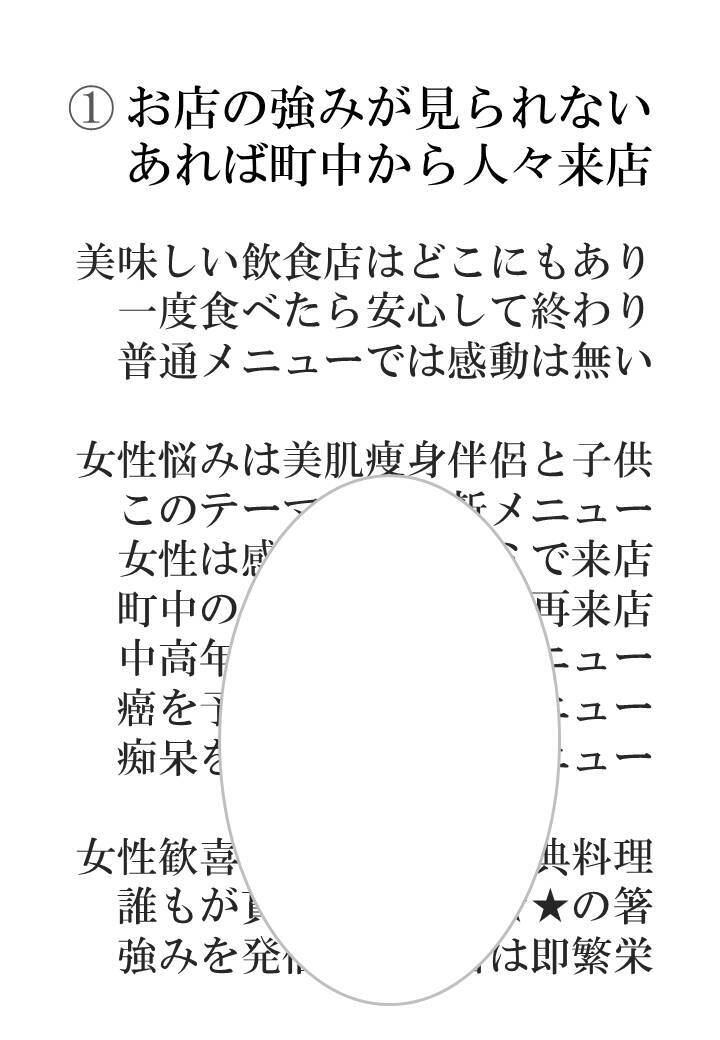 ① お店の強みが見られない
あれば町中から人々来店
美味しい飲食店はどこにもあり
一度食べたら安心して終わり
普通メニューでは感動は無い
女性悩みは美肌痩身伴侶と子供
このテーマ 新メニュー
女性は感 で来店
町中の 再来店
中高年 ニュー
癌を予 ニュー
痴呆を ニュー
女性歓喜 典料理
誰もが ★の箸
強みを発 は即繁栄